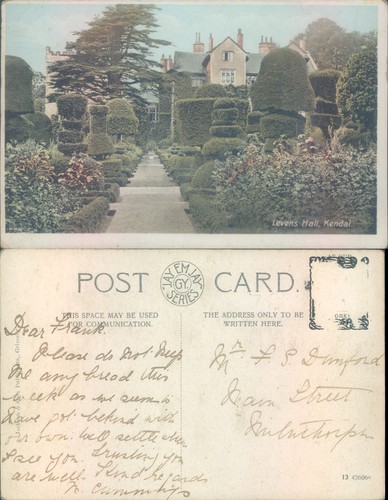 Levens Hall, Kendal
POST CARD.
JAY EM JAY
"GY"
SERIES
THIS SPACE MAY BE USED
FOR COMMUNICATION.
THE ADDRESS ONLY TO BE
WRITTEN HERE.
Dear Frank.
Please do not keep
me any bread this
week as we seem to
have got behind with
our own. Will settle when
I see you. Trusting you
are well. Kind regards
Mr F S Dunford
Main Street
Milnthorpe